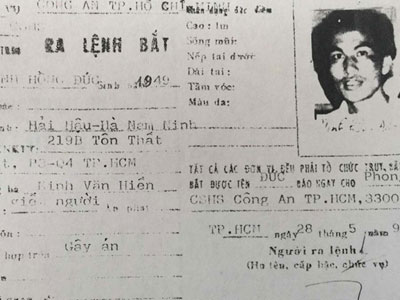 VỤ CÔNG AN TP.HỒ CHÍ
RA LỆNH BẮT
NH HỒNG ĐỨC Sinh 1949
Hải Hậu-Hà Nam Ninh
219B Tôn Thất
P3-Q4 TP.HCM
Kinh Văn Hiển
giết người
Gây án
Nhân dạng đặc điểm
Cao: 1m
Sống mũi:
Nếp tai dưới
Dái tai:
Tầm vóc:
Màu da:
TẤT CẢ CÁC ĐƠN VỊ ĐỀU PHẢI TỔ CHỨC TRUY, BẮT
BẮT ĐƯỢC TÊN ĐỨC BÁO NGAY CHO Phon
CSHS Công An TP.HCM, 3300
TP.HCM ngày 28 tháng 5 năm 9
Người ra lệnh
(Họ tên, cấp bậc, chức vụ)